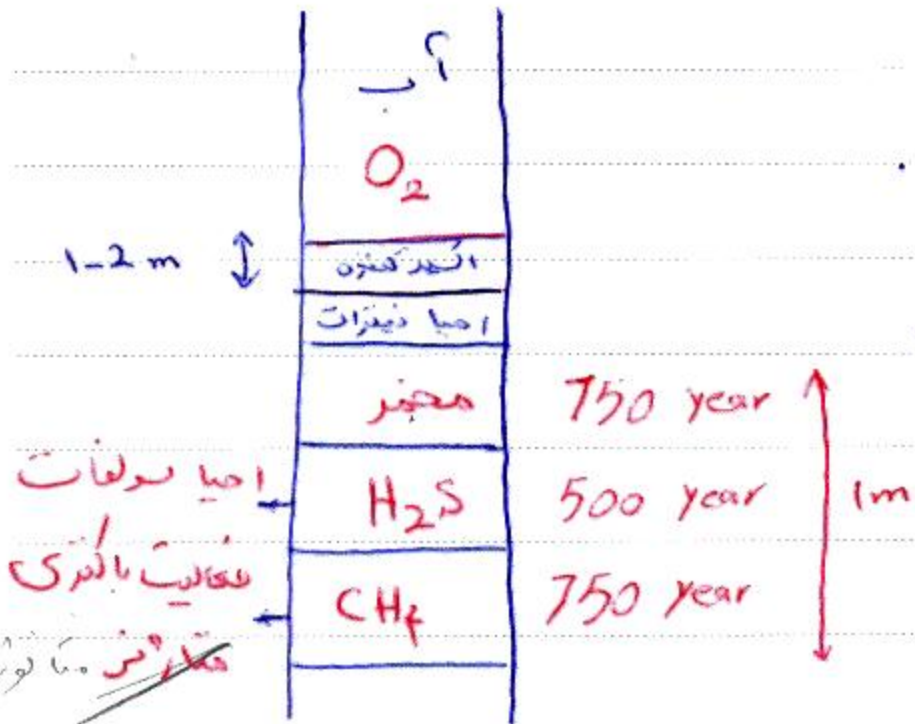 آب
O₂
1-2 m
اکسید کننده
احیا نیترات
750 year
احیا سولفات
H₂S
500 year
1m
فعالیت باکتری
CH₄
750 year